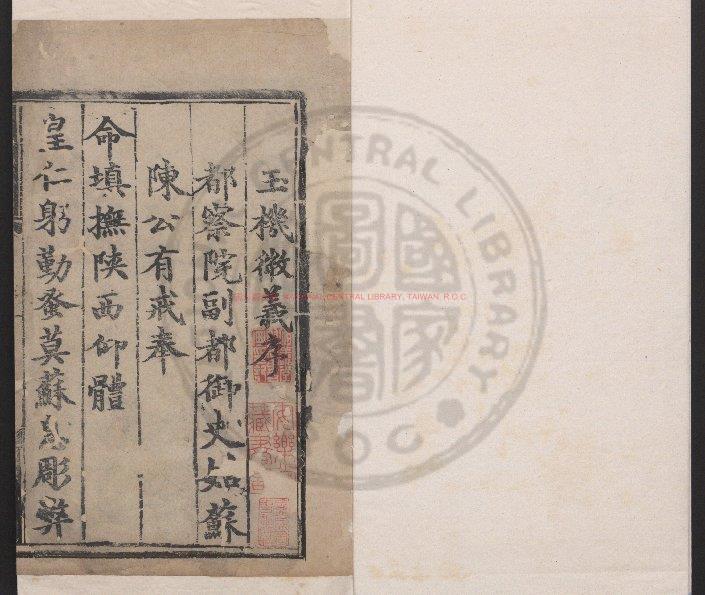 玉機微義序
都察院副都御史如蘇
陳公有戒奉
命填撫陝西仰體
皇仁躬勤蚤莫蘇彫弊
NATIONAL CENTRAL LIBRARY, TAIWAN, R.O.C
CENTRAL LIBRARY